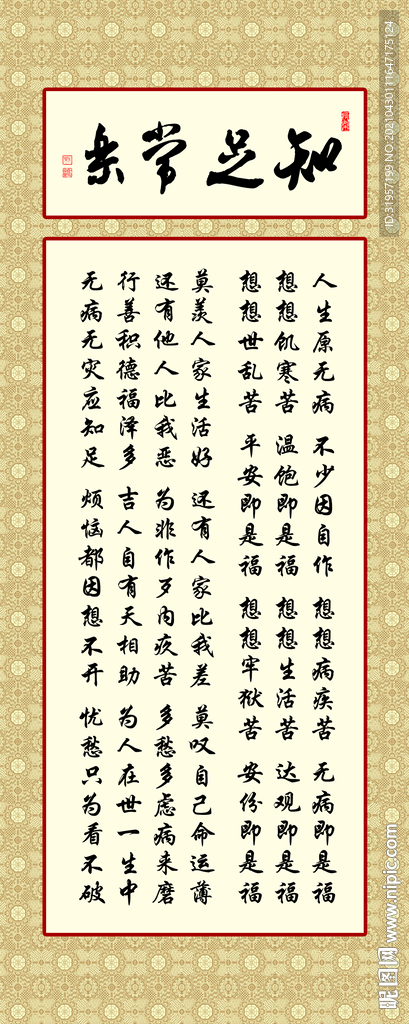 知足常乐
人生原无病 不少因自作 想想病疾苦 无病即是福
想想饥寒苦 温饱即是福 想想生活苦 达观即是福
想想世乱苦 平安即是福 想想牢狱苦 安份即是福
莫羡人家生活好 还有人家比我差 莫叹自己命运薄
还有他人比我恶 为非作歹内疚苦 多愁多虑病来磨
行善积德福泽多 吉人自有天相助 为人在世一生中
无病无灾应知足 烦恼都因想不开 忧愁只为看不破
ID 31957199 NO.20210430111647175124
昵图网 www.nipic.com